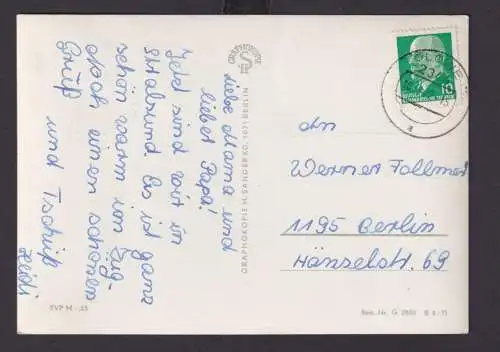 Liebe Mama und
lieber Papa!
Jetzt sind wir in
Stralsund. Es ist ganz
schön warm im Zug.
Noch einen schönen
Gruß
und Tschüß
Heidi
GRAPHOKOPIE
GRAPHOKOPIE H. SANDER KG, 1071 BERLIN
EVP M -,25
10
An
Werner Follmer
1195 Berlin
Hänselstr. 69
Best.-Nr. G